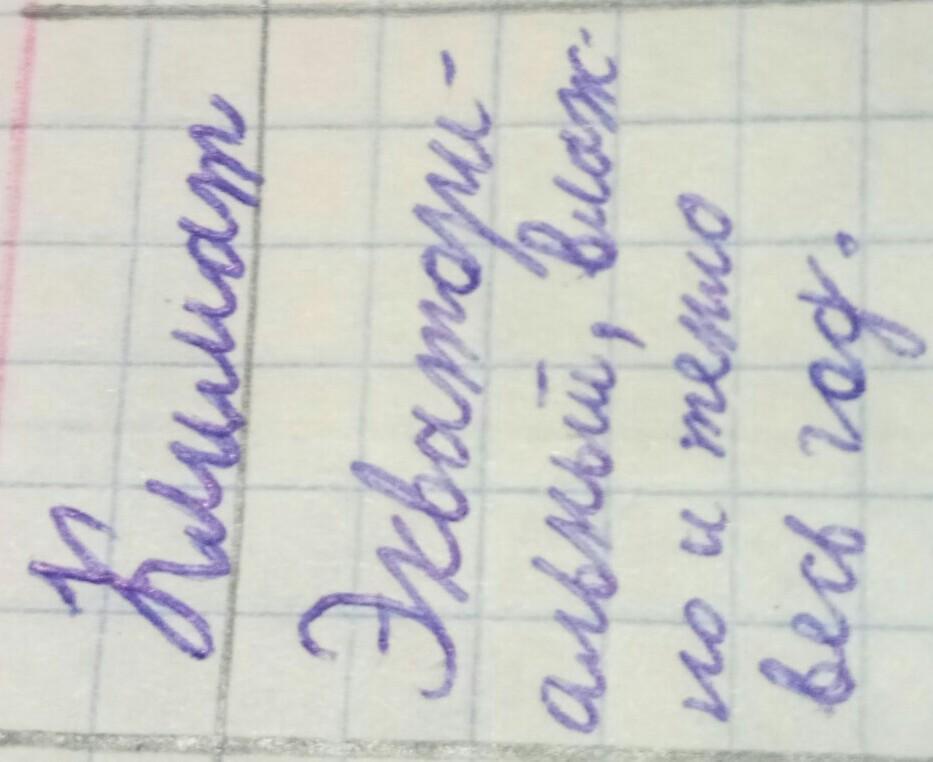 Климат
Экватори-
альный, влаж-
но и тепло
весь год.